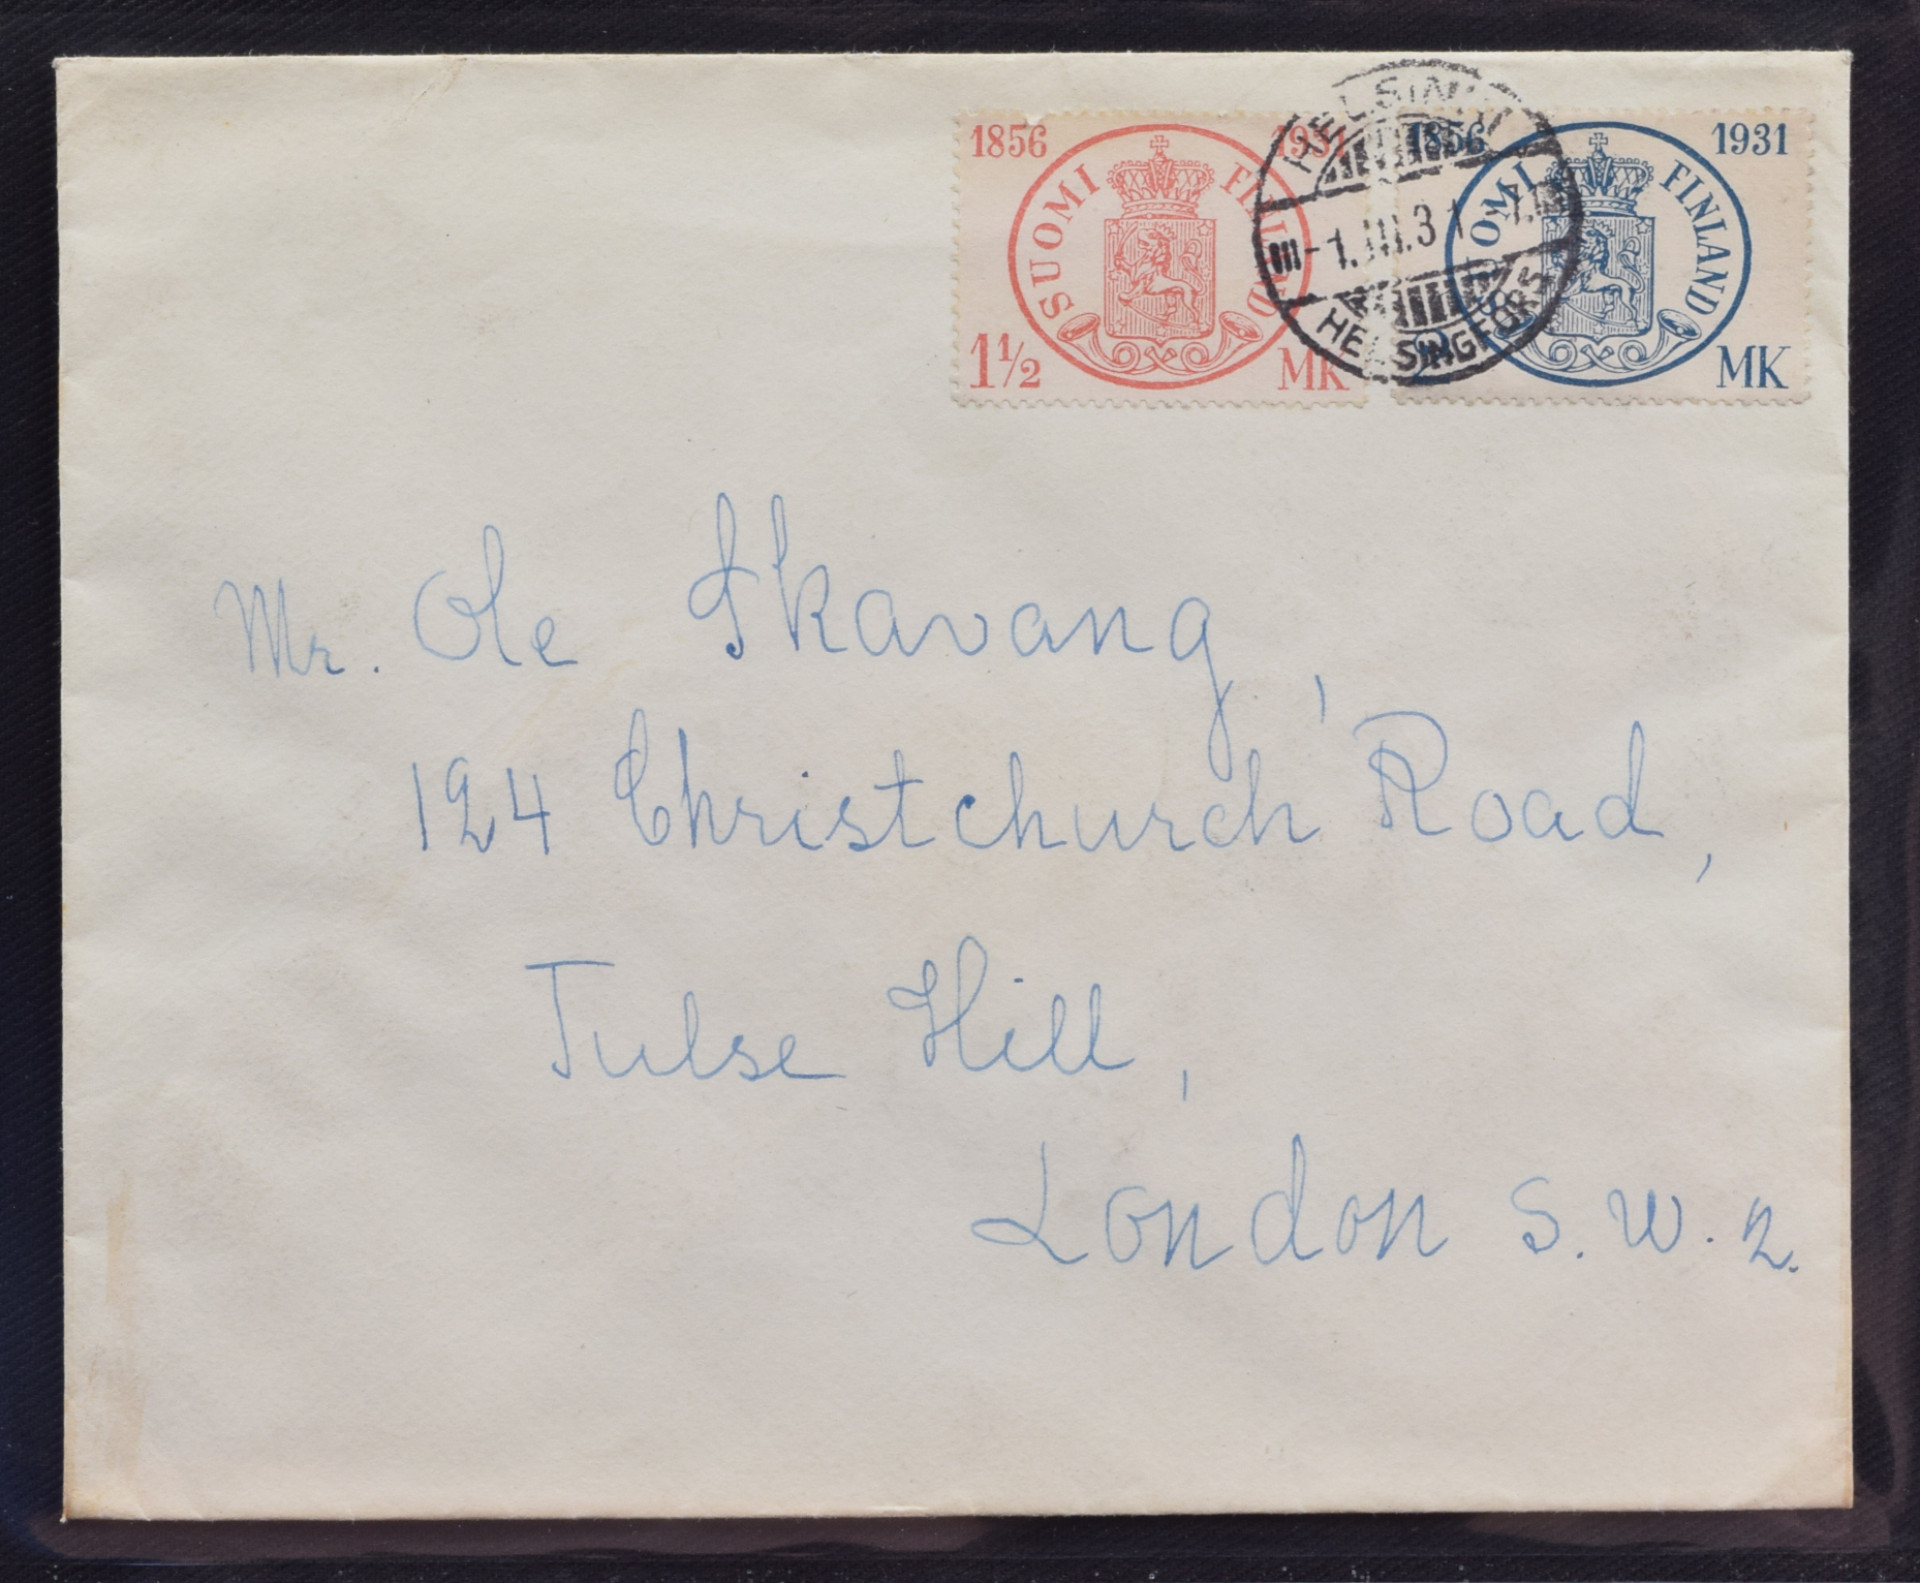 1856 1931
SUOMI FINLAND
1½ MK
1856 1931
SUOMI FINLAND
2 MK
HELSINKI
-1.III.31.-7.
HELSINGFORS
Mr. Ole Skavang,
124 Christchurch Road,
Tulse Hill,
London S.W.2.